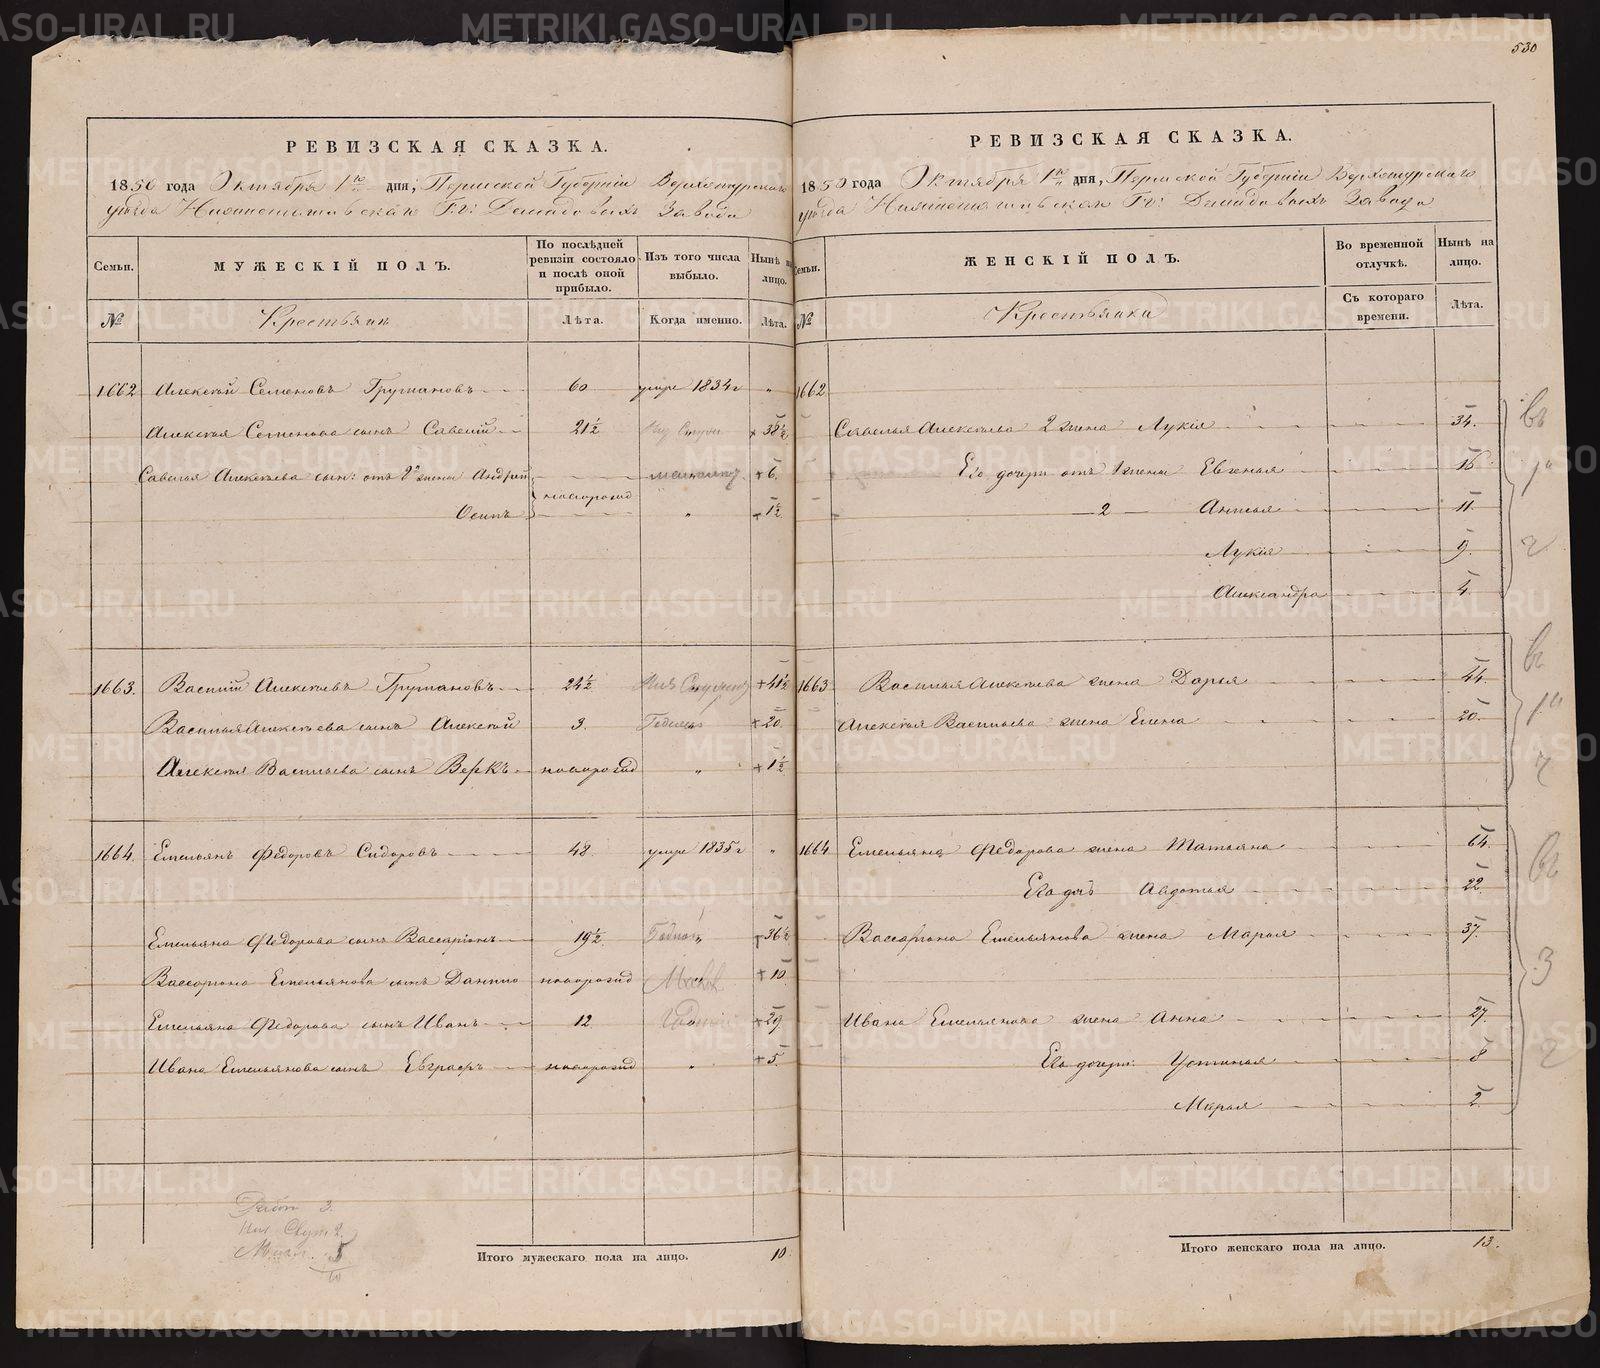 530
РЕВИЗСКАЯ СКАЗКА.
1850 года Октября 1го дня, Пермской Губерніи Верхотурскаго
уѣзда Нижнетагильскаго Гг: Демидовыхъ Завода
Семьи. МУЖЕСКІЙ ПОЛЪ. По послѣдней ревизіи состояло и послѣ оной прибыло. Изъ того числа выбыло. Нынѣ на лицо.
№ Крестьяне Лѣта. Когда именно. Лѣта.
1662 Алексѣй Семеновъ Трутановъ 60 умре 1834 г "
Алексѣя Семенова сынъ Савелій 21½ + 38½
Савелья Алексѣева сын: отъ 2й жены Андрей новорожд + 6.
Осипъ " + 1½
1663. Василій Алексѣевъ Трутановъ 24½ + 41½
Василья Алексѣева сынъ Алексѣй 3. + 20.
Алексѣя Васильева сынъ Веркъ новорожд " + 1½
1664. Емельянъ Федоровъ Сидоровъ 48. умре 1835 г "
Емельяна Федорова сынъ Вассаріонъ 19½ + 36½
Вассаріона Емельянова сынъ Данило новорожд + 10.
Емельяна Федорова сынъ Иванъ 12. + 29.
Ивана Емельянова сынъ Евграфъ новорожд " + 5.
3.
5
10
Итого мужескаго пола на лицо. 10.
РЕВИЗСКАЯ СКАЗКА.
1850 года Октября 1го дня, Пермской Губерніи Верхотурскаго
уѣзда Нижнетагильскаго Гг: Демидовыхъ Завода
Семьи. ЖЕНСКІЙ ПОЛЪ. Во временной отлучкѣ. Нынѣ на лицо.
№ Крестьянки Съ котораго времени. Лѣта.
1662
Савелья Алексѣева 2 жена Лукія 34.
Его дочери отъ 1 жены Евгенья 16.
2 Анисья 11.
Лукія 9.
Александра 4.
1663 Василья Алексѣева жена Дарья 44.
Алексѣя Васильева жена Елена 20.
1664 Емельяна Федорова жена Татьяна 64.
Его дочь Авдотья 22.
Вассаріона Емельянова жена Марья 37.
Ивана Емельянова жена Анна 27.
Его дочери: Устинья 8
Марья 2.
Итого женскаго пола на лицо. 13.
METRIKI.GASO-URAL.RU